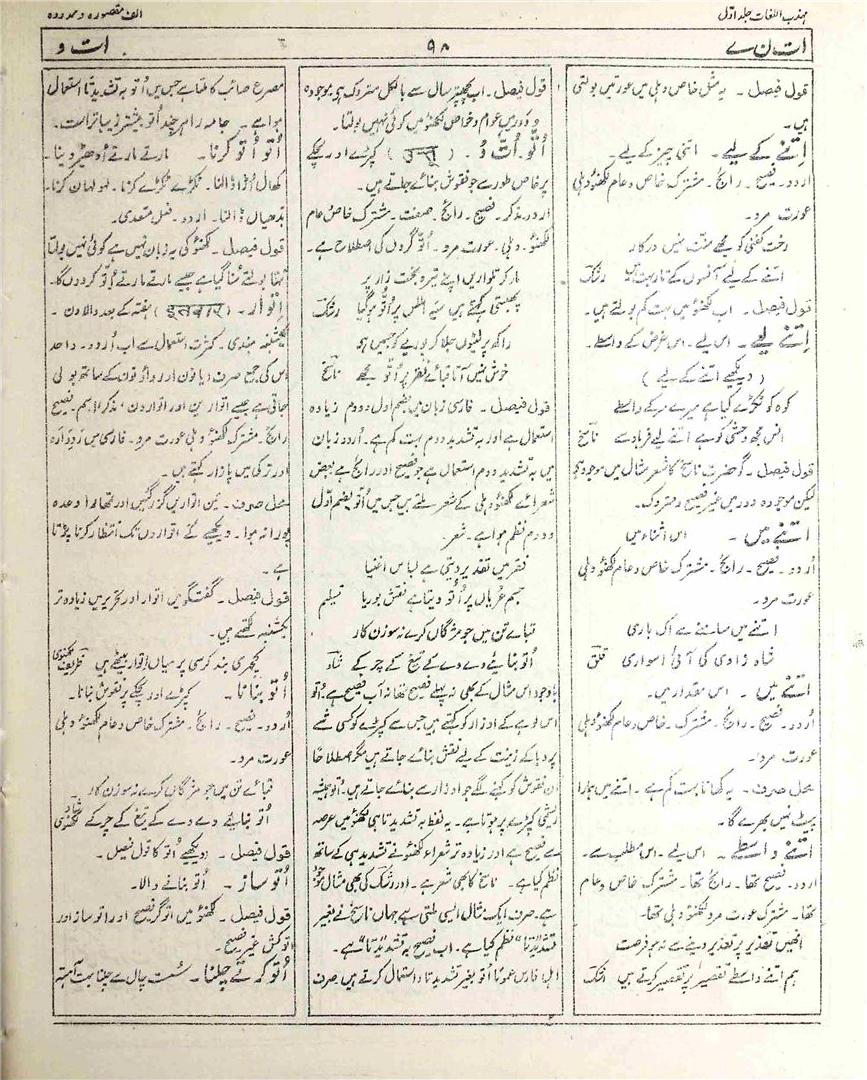 مہذب اللغات جلد اوّل
الف مقصورہ و ممدودہ
ات ن ے
۹۸
ات و
قول فیصل۔ یہ مثل خاص دہلی میں عورتیں بولتی
ہیں۔
اِتنے کے لیے۔ اتنی چیز کے لیے۔
اردو۔ فصیح۔ رائج۔ مشترک خاص و عام لکھنؤ دہلی
عورت مرد۔
رخت کفنی کو مجھے منت نہیں درکار
اتنے کے لیے آنسوں کے تار بہت رشکؔ
قول فیصل۔ اب لکھنؤ میں بہت کم بولتے ہیں۔
اِتنے لیے۔ اس لیے۔ اس غرض کے واسطے۔
(دیکھیے اتنے کے لیے)
کوہ کو ٹکڑے کیا ہے میرے سر کے واسطے
انس مجھ وحشی کو ہے اتنے لیے فرہاد سے ناسخؔ
قول فیصل۔ گو حضرت ناسخ کا شعر مثال میں موجود ہے
لیکن موجودہ دور میں غیر فصیح و متروک۔
اتنے میں۔ اس اثناء میں
اُردو۔ فصیح۔ رائج۔ مشترک خاص و عام لکھنؤ دہلی
عورت مرد۔
اتنے میں سامنے سے اک باری
شاہ زادی کی آئی اسواری قلقؔ
اتنے میں۔ اس مقدار میں۔
اُردو۔ فصیح۔ رائج۔ مشترک۔ خاص و عام لکھنؤ دہلی
عورت مرد۔
محل صرف۔ یہ کھانا بہت کم ہے۔ اتنے میں ہمارا
پیٹ نہیں بھرے گا۔
اتنے واسطے۔ اس لیے۔ اس مطلب سے۔
اردو۔ فصیح تھا۔ رائج تھا۔ مشترک خاص و عام
تھا۔ مشترک عورت مرد لکھنؤ دہلی تھا۔
انھیں تعذیر پر تعذیر دینے سے نہ ہو فرصت
ہم اتنے واسطے تقصیر پر تقصیر کرتے ہیں رشکؔ
قول فیصل۔ اب پچھتر سال سے بالکل متروک ہے موجودہ
دور میں عوام و خواص لکھنؤ میں کوئی نہیں بولتا۔
اُتّو۔ اُت ت و۔ (उत्तू) کپڑے اور لچکے
پر خاص طور سے جو نقوش بنائے جاتے ہیں۔
اردو۔ مذکر۔ فصیح۔ رائج۔ صفت۔ مشترک خاص عام
لکھنؤ۔ دہلی۔ عورت مرد۔ اُتّو گروں کی اصطلاح ہے۔
مار کر تلواریں اپنے تیرہ بخت زار پر
پھبتی کہتے ہیں سیہ اطلس پر اُتّو ہو گیا رشکؔ
راکھ پر لیٹوں جلا کر بوریے کو جسم ہو
خوش نہیں آتا قبائے فقر پر اُتّو مجھے ناسخؔ
قول فیصل۔ فارسی زبان میں بضم اول و دوم زیادہ
استعمال ہے اور بہ تشدید دوم بہت کم ہے۔ اُردو زبان
میں بہ تشدید دوم استعمال ہے جو فصیح اور رائج ہے بعض
شعرائے لکھنؤ و دہلی کے شعر ملتے ہیں جس میں اُتو بضم اول
و دوم نظم ہوا ہے۔ شعر
فقر میں تقدیر دیتی ہے لباس اغنیا
جسم عریاں پر اُتو دیتا ہے نقش بوریا تسلیم
قبائے تن میں جو مژگاں کرے نہ سوزن کار
اُتو بنائیے دے دے کے تیغ کے چرکے شادؔ
باوجود اس مثال کے بھی نہ پہلے فصیح تھا نہ اب فصیح ہے۔ اُتّو
اس لوہے کے اوزار کو کہتے ہیں جس سے کپڑے کو کسی شے
پر دبا کے زینت کے لیے نقش بنائے جاتے ہیں مگر اصطلاحًا
ان نقوش کو کہنے لگے جو اوزار سے بنائے جاتے ہیں۔ اُتو ہمیشہ
ریشمی کپڑے پر ہوتا ہے۔ یہ لفظ بہ تشدید تا ہی لکھنؤ میں عرصہ
سے فصیح ہے اور زیادہ تر شعراء لکھنؤ نے تشدید ہی کے ساتھ
نظم کیا ہے۔ ناسخ کا بھی شعر ہے۔ اور رشک کی بھی مثال موجود
ہے۔ صرف ایک مثال ایسی ملتی ہے جہاں ناسخ نے بغیر
تشدید تا نظم کیا ہے۔ اب فصیح بہ تشدید تا ہے۔
اہل فارس عمومًا اُتو بغیر تشدید تا استعمال کرتے ہیں صرف
مصرع صائب کا ملتا ہے جس میں اُتّو بہ تشدید تا استعمال
ہوا ہے۔ جامہ را ہر چند اُتّو بیشتر زیبا تراست۔
اُتّو اُتّو کرنا۔ مارتے مارتے اُدھیڑ دینا۔
کھال اُڑا ڈالنا۔ ٹکڑے ٹکڑے کرنا۔ لہو لہان کرنا۔
بدھیاں ڈالنا۔ اردو۔ فعل متعدی۔
قول فیصل۔ لکھنؤ کی یہ زبان نہیں ہے کوئی نہیں بولتا
تنہا بولتے سنا گیا ہے جیسے مارتے مارتے اُتّو کر دوں گا۔
اِتْوار۔ (इतवार) ہفتہ کے بعد والا دن۔
یکشنبہ ہندی۔ کثرت استعمال سے اب اُردو۔ واحد
اس کی جمع صرف (یا و نون اور واؤ نون کے ساتھ بولی
جاتی ہے جیسے اتواریں اور اتواروں، مذکر، اسم، فصیح
رائج، مشترک لکھنؤ و دہلی عورت مرد۔ فارسی میں
اور ترکی میں پازار کہتے ہیں۔
محل صرف۔ تین اتواریں گزر گئیں اور تمھارا وعدہ
پورا نہ ہوا۔ دیکھیے کَے اتواروں تک انتظار کرنا پڑتا
ہے۔
قول فیصل۔ گفتگو میں اتوار اور تحریر میں زیادہ تر
یکشنبہ لکھتے ہیں۔
کچہری بند کرسی پر میاں اتوار بیٹھے ہیں ظریفؔ لکھنوی
اُتّو بنانا۔ کپڑے اور لچکے پر نقوش بنانا۔
اُردو۔ فصیح۔ رائج۔ مشترک خاص و عام لکھنؤ و دہلی
عورت مرد۔
قبائے تن میں جو مژگاں کرے نہ سوزن کار
اُتو بنائیے دے دے کے تیغ کے چرکے شادؔ لکھنوی
قول فیصل۔ (دیکھیے اُتّو کا قول فیصل۔
اُتّو ساز۔ اُتّو بنانے والا۔
قول فیصل۔ لکھنؤ میں اُتّو گر فصیح اور اُتّو ساز اور
اُتّو کش غیر فصیح۔
اُتّو کے تے چلنا۔ سُست چال سے چلنا بہت آہستہ